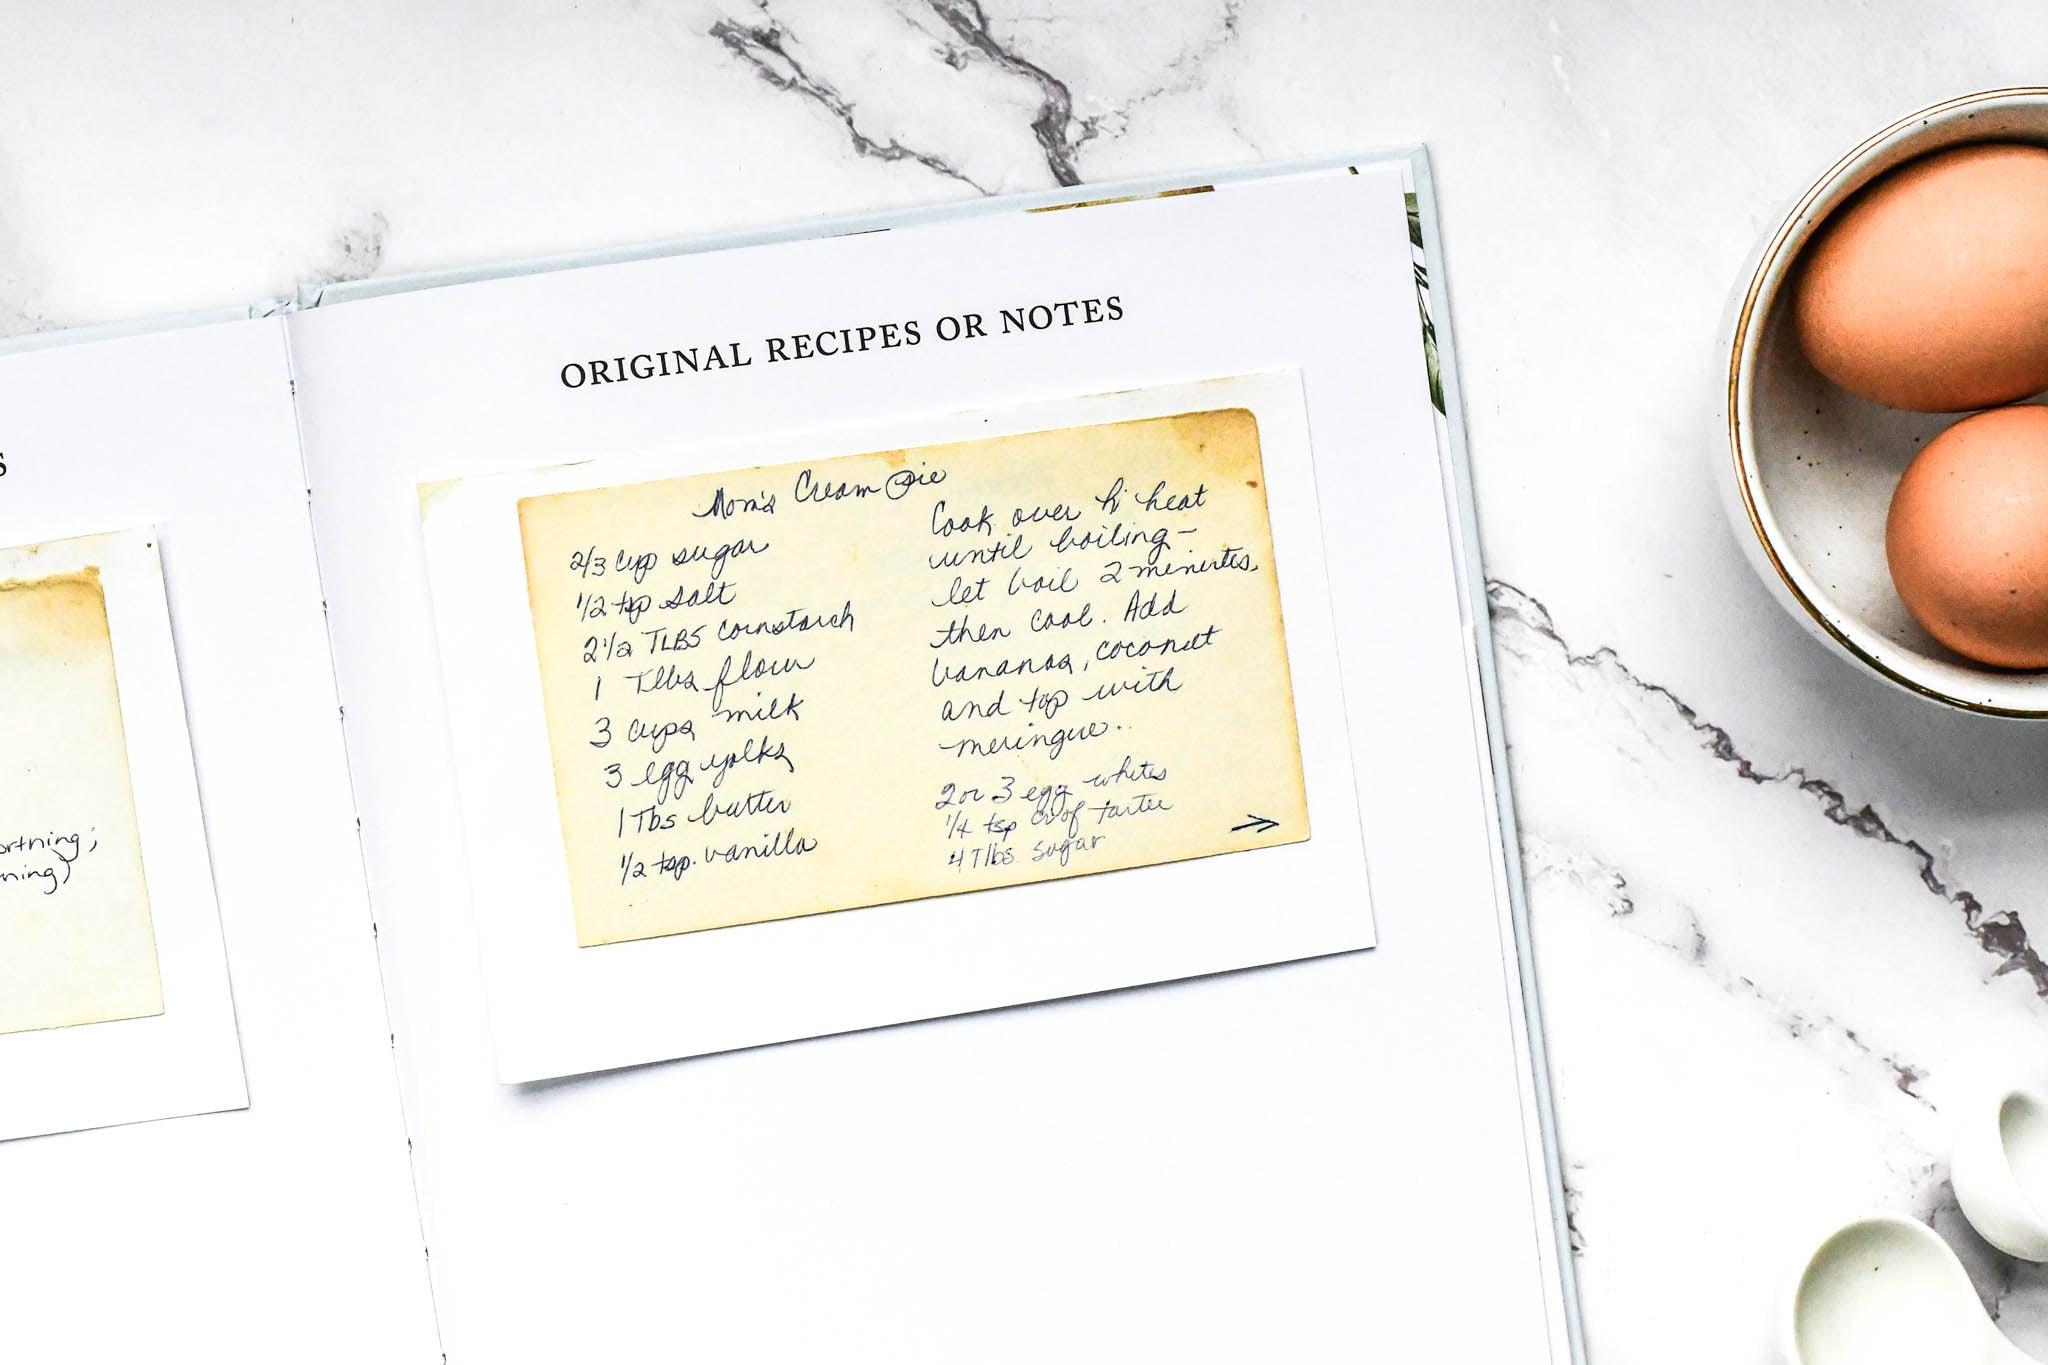 S
ortning;
ning)
ORIGINAL RECIPES OR NOTES
Mom's Cream Pie
2/3 cup sugar
1/2 tsp salt
2 1/2 TLBS cornstarch
1 Tlbs flour
3 cups milk
3 egg yolks
1 Tbs butter
1/2 tsp. vanilla
Cook over hi heat
until boiling—
let boil 2 minutes,
then cool. Add
bananas, coconut
and top with
meringue..
2 or 3 egg whites
1/4 tsp cr of tarter
4 Tlbs. sugar
→